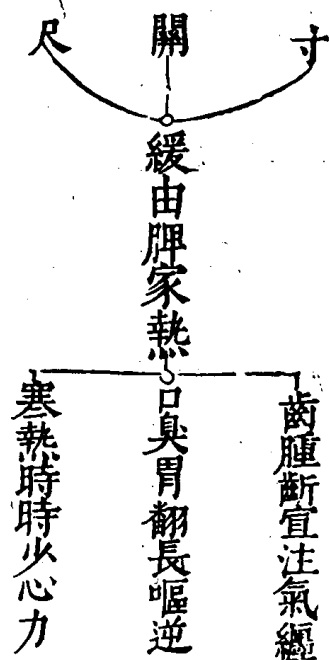 寸
關
尺
緩由脾家熱
齒腫齗宣注氣纏
口臭胃翻長嘔逆
寒熱時時少心力